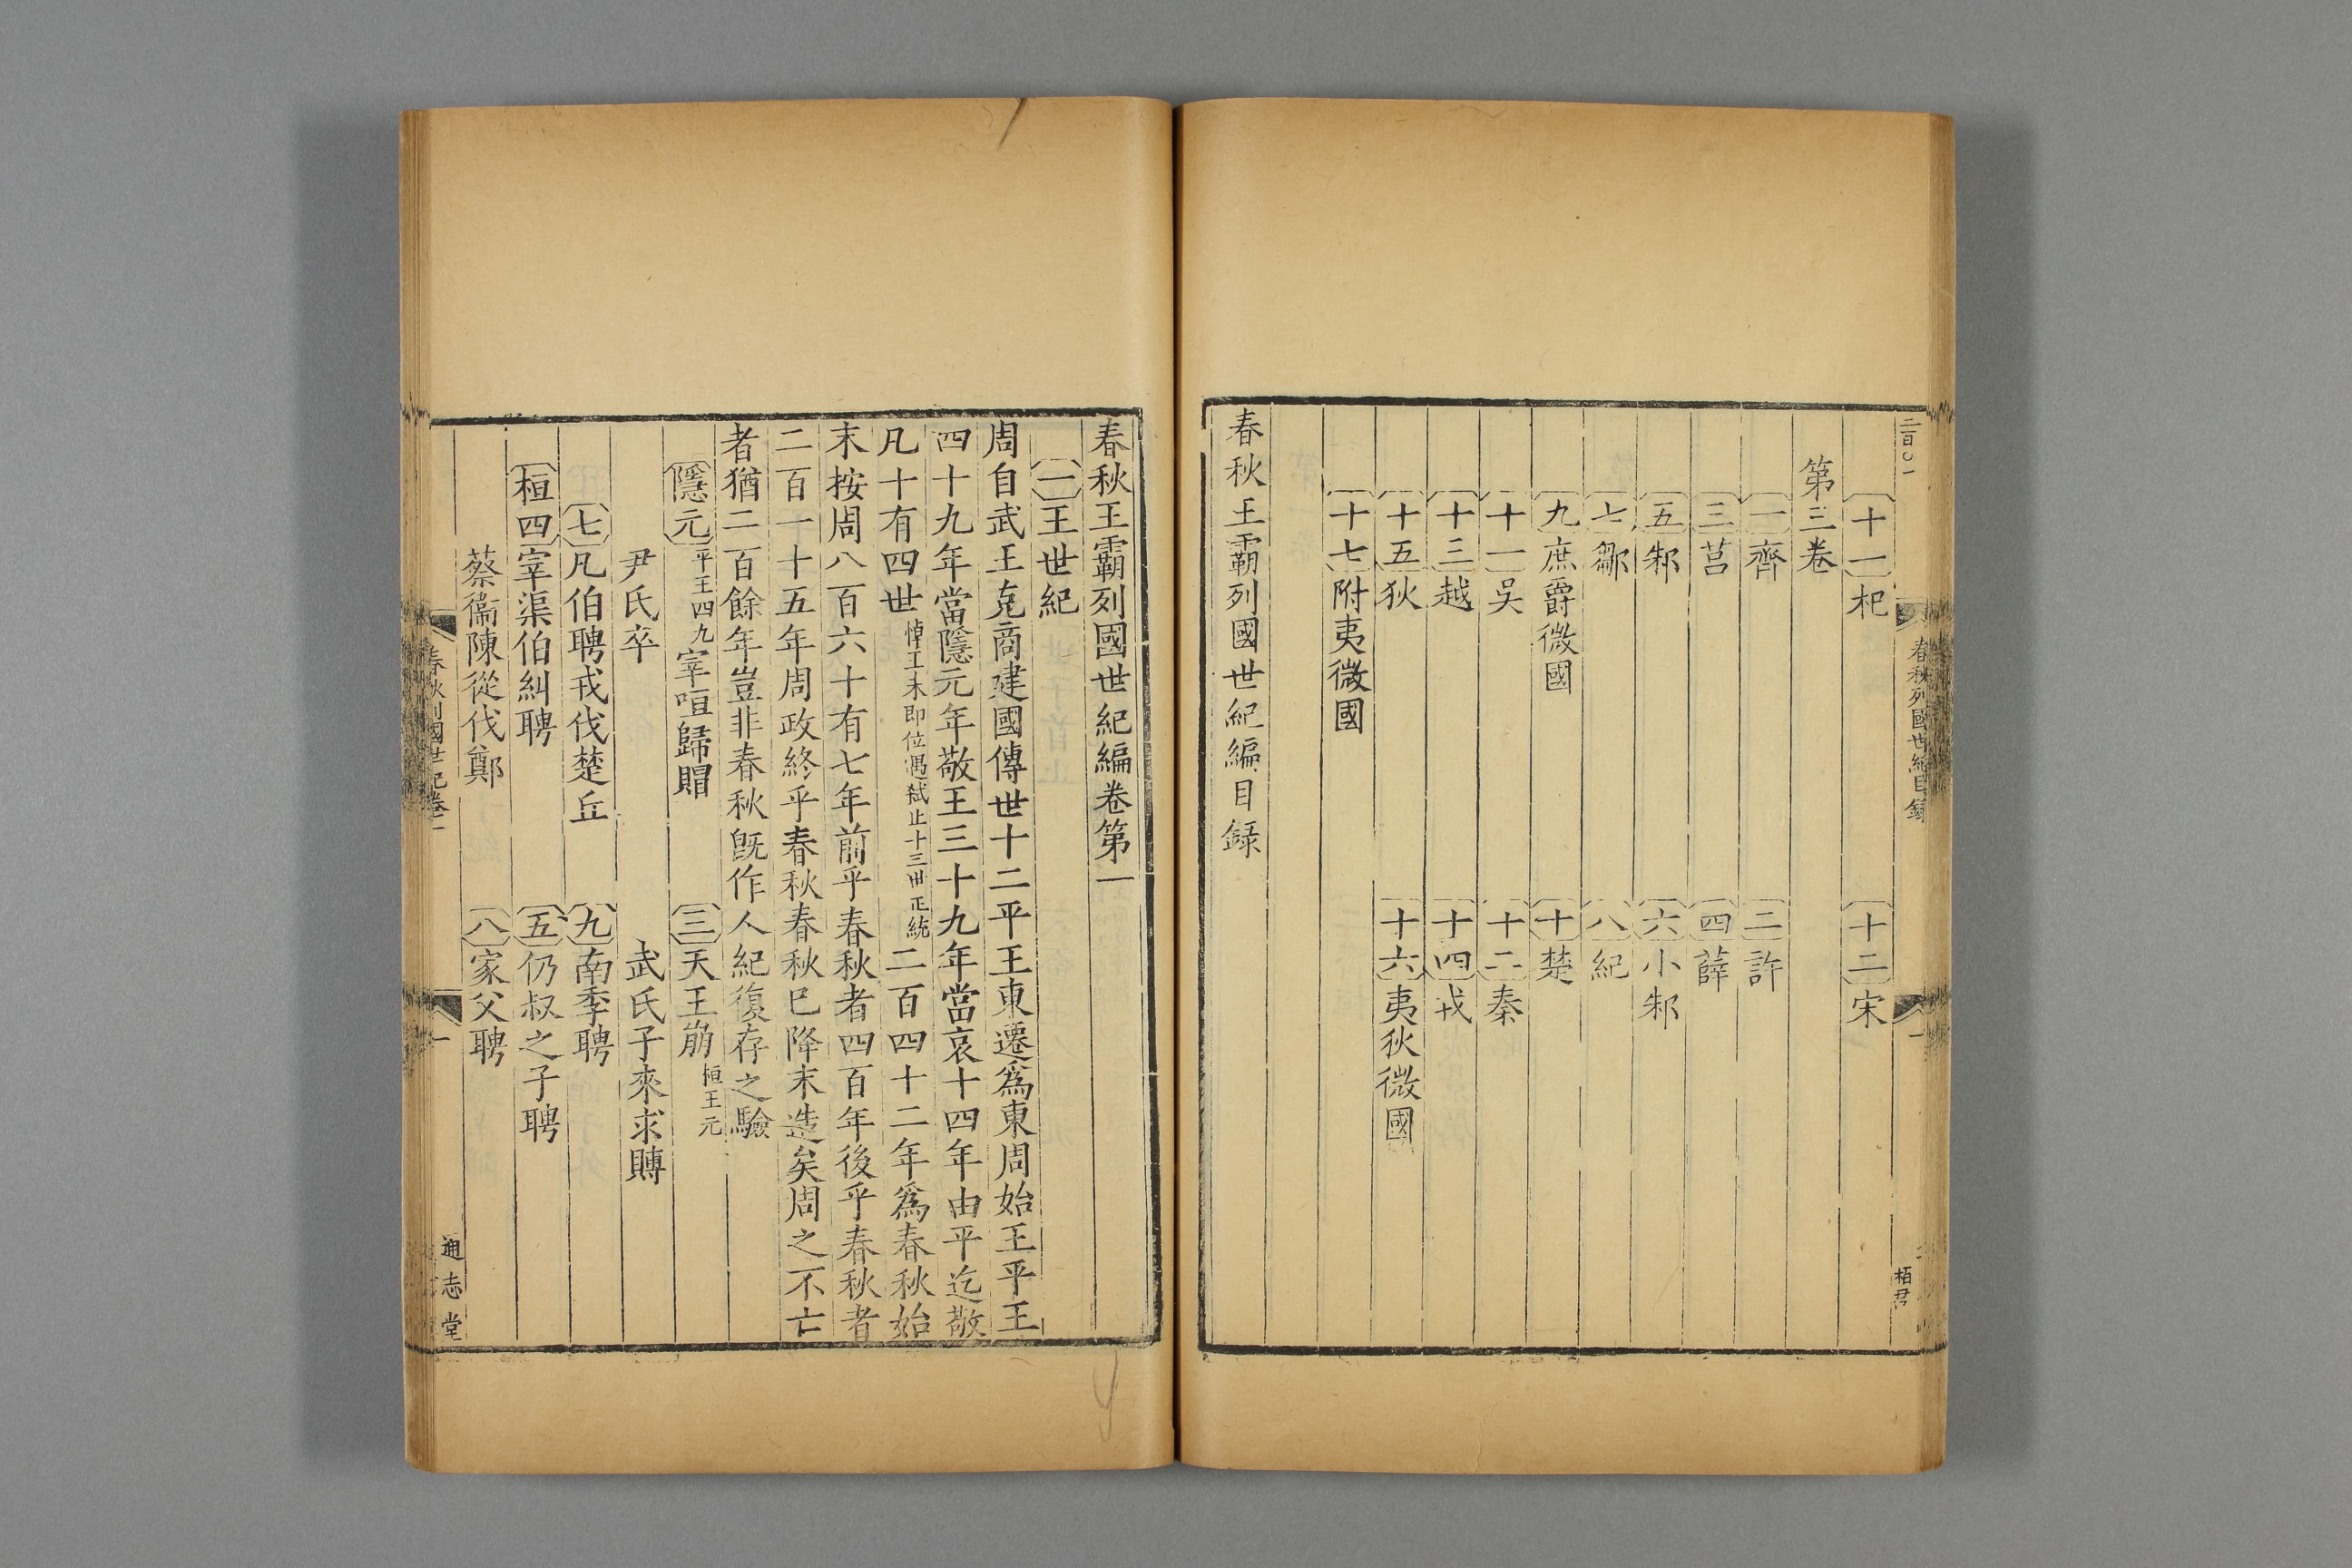 二百〇一
春秋列國世紀目錄
一
栢君
十一杞 十二宋
第三卷
一齊 二許
三莒 四薛
五邾 六小邾
七鄒 八紀
九庶爵微國 十楚
十一吳 十二秦
十三越 十四戎
十五狄 十六夷狄微國
十七附夷微國
春秋王霸列國世紀編目録
春秋王霸列國世紀編卷第一
一王世紀
周自武王克商建國傳世十二平王東遷爲東周始王平王
四十九年當隱元年敬王三十九年當哀十四年由平迄敬
凡十有四世悼王未即位遇弑止十三世正統二百四十二年爲春秋始
末按周八百六十有七年前乎春秋者四百年後乎春秋者
二百一十五年周政終乎春秋春秋已降末造矣周之不亡
者猶二百餘年豈非春秋旣作人紀復存之驗
隱元平王四九宰咺歸賵 三天王崩桓王元
尹氏卒 武氏子來求賻
七凡伯聘戎伐楚丘 九南季聘
桓四宰渠伯糾聘 五仍叔之子聘
蔡衞陳從伐鄭 八家父聘
春秋列國世紀卷一
一
通志堂